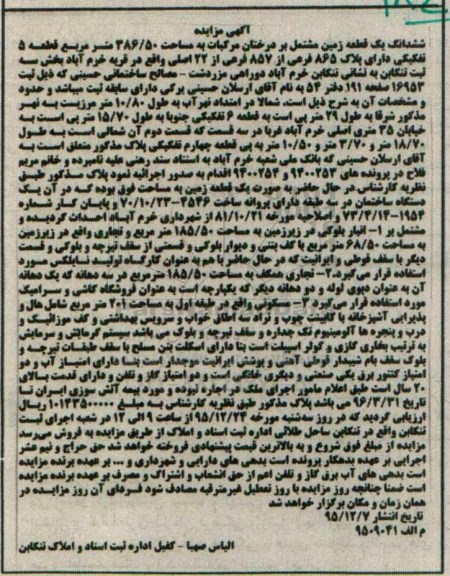 آگهی مزایده
ششدانگ یک قطعه زمین مشتمل بر درختان مرکبات به مساحت ۳۸۶/۵۰ متر مربع قطعه ۵
تفکیکی دارای پلاک ۸۶۵ فرعی از ۸۵۷ فرعی از ۲۲ اصلی واقع در قریه خرم آباد بخش سه
ثبت تنکابن به نشانی تنکابن خرم آباد دوراهی مزردشت - مصالح ساختمانی حسینی که ذیل ثبت
۱۶۹۵۳ صفحه ۱۹۱ دفتر ۵۴ به نام آقای ارسلان حسینی یرکی دارای سابقه ثبت میباشد و حدود
و مشخصات آن به شرح ذیل است. شمالا در امتداد نهرآب به طول ۱۰/۸۰ متر مرزیست به نهر
مذکور شرقا به طول ۲۹ متر پی است به قطعه ۶ تفکیکی جنوبا به طول ۱۵/۷۰ متر پی است به
خیابان ۳۵ متری اصلی خرم آباد غربا در سه قسمت که قسمت دوم آن شمالی است به طول
۱۸/۷۰ متر و ۳/۷۰ متر و ۱۰/۵۰ متر به پی قطعه چهارم تفکیکی پلاک مذکور متعلق است به
آقای ارسلان حسینی که بانک ملی شعبه خرم آباد به استناد سند رهنی علیه نامبرده و خانم مریم
فلاح در پرونده های ۹۴۰۰۲۵۳ و ۹۴۰۰۲۵۴ اقدام به صدور اجرائیه نمود پلاک مذکور طبق
نظریه کارشناس در حال حاضر به صورت یک قطعه زمین به مساحت فوق بوده که در آن یک
دستگاه ساختمان در سه طبقه دارای پروانه ساخت ۲۵۴۶-۷۰/۱۰/۲۳ و پایان کار شماره
۱۹۵۴-۷۳/۳/۱۴ و اصلاحیه مورخه ۸۱/۱۰/۲۱ از شهرداری خرم آباد احداث گردیده و
مشتمل بر ۱- انبار بلوکی در زیرزمین به مساحت ۱۸۵/۵۰ متر مربع و تجاری واقع در زیرزمین
به مساحت ۶۸/۵۰ متر مربع با کف بتنی و دیوار بلوکی و قسمتی از سقف تیرچه و بلوکی و قسمت
دیگر با سقف قوطی و ایرانیت که در حال حاضر با هم به عنوان کارگاه تولید نایلکس مورد
استفاده قرار می‌گیرد.۲- تجاری همکف به مساحت ۱۸۵/۵۰ مترمربع در سه دهانه که یک دهانه
آن به عنوان دپوی لوله و دو دهانه دیگر که یکپارچه است به عنوان فروشگاه کاشی و سرامیک
مورد استفاده قرار می‌گیرد ۳- مسکونی واقع در طبقه اول به مساحت ۲۰۱ متر مربع شامل هال و
پذیرایی آشپزخانه با کابینت چوب و نراد سه اطاق خواب و سرویس بهداشتی و کف موزائیک و
درب و پنجره ها آلومینیوم تک جداره و سقف تیرچه و بلوک می باشد سیستم گرمایش و سرمایش
به ترتیب بخاری گازی و کولر اسپیلت است بنا دارای اسکلت بتن مسلح با سقف طبقات تیرچه و
بلوک سقف بام شیبدار قوطی آهنی و پوشش ایرانیت موجدار است بنا دارای امتیاز آب و دو
امتیاز کنتور برق یکی صنعتی و دیگری خانگی است و دو امتیاز گاز و تلفن و دارای قدمت بالای
۲۰ سال است طبق اعلام مامور اجرای ملک در اجاره نبوده و مورد بیمه آتش سوزی ایران تا
تاریخ ۹۶/۳/۳۱ می باشد پلاک مذکور طبق نظریه کارشناس به مبلغ ۱۰۱۳۳۵۰۰۰۰۰ ریال
ارزیابی گردید که در روز سه‌شنبه مورخه ۹۵/۱۲/۲۴ از ساعت ۹ الی ۱۲ در شعبه اجرای ثبت
تنکابن واقع در تنکابن ساحل طلائی اداره ثبت اسناد و املاک از طریق مزایده به فروش می‌رسد
مزایده از مبلغ فوق شروع و به بالاترین قیمت پیشنهادی فروخته خواهد شد حق حراج و نیم عشر
اجرایی بر عهده بدهکار پرونده است بدهی های دارایی و شهرداری و ... بر عهده برنده مزایده
است بدهی های آب برق گاز و تلفن اعم از حق انشعاب و اشتراک و مصرف بر عهده برنده مزایده
است ضمنا چنانچه روز مزایده با روز تعطیل غیرمترقبه مصادف شود فردای آن روز مزایده در
همان زمان و مکان برگزار خواهد شد
تاریخ انتشار ۹۵/۱۲/۷
م الف ۹۵۰۹۰۴۱
الیاس صهبا - کفیل اداره ثبت اسناد و املاک تنکابن